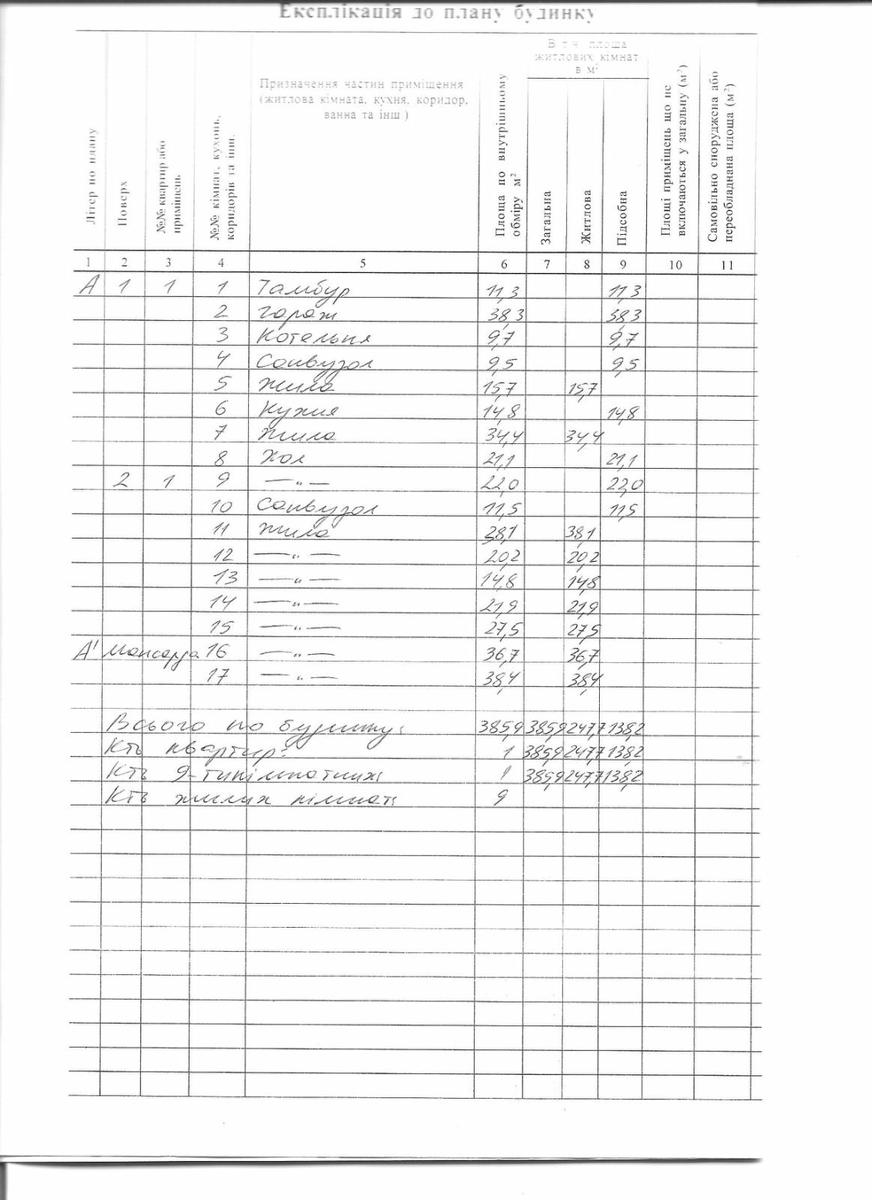 Експлікація до плану будинку
Літер по плану
Поверх
№№ квартир або приміщень
№№ кімнат, кухонь, коридорів та інш.
Призначення частин приміщення
(житлова кімната, кухня, коридор,
ванна та інш.)
Площа по внутрішньому обміру м²
В т.ч. площа
житлових кімнат
в м²
Загальна
Житлова
Підсобна
Площі приміщень що не включаються у загальну (м²)
Самовільно споруджена або переобладнана площа (м²)
1 2 3 4 5 6 7 8 9 10 11
А 1 1 1 Тамбур 11,3 11,3
2 гараж 38,3 38,3
3 Котельня 9,7 9,7
4 Санвузол 9,5 9,5
5 Жила 15,7 15,7
6 Кухня 14,8 14,8
7 Жила 34,4 34,4
8 Хол 21,1 21,1
2 1 9 —„— 22,0 22,0
10 Санвузол 11,5 11,5
11 Жила 38,1 38,1
12 —„— 20,2 20,2
13 —„— 14,8 14,8
14 —„— 21,9 21,9
15 —„— 27,5 27,5
А' Мансарда 16 —„— 36,7 36,7
17 —„— 38,4 38,4
Всього по будинку: 385,9 385,9 247,7 138,2
Кть квартир: 1 385,9 247,7 138,2
Кть 9-тикімнатних 1 385,9 247,7 138,2
Кть жилих кімнат: 9